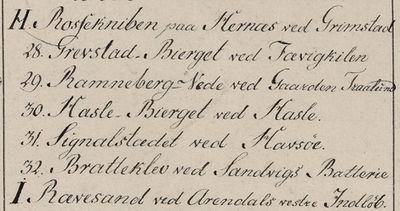 H. Rossekniben paa Hernæs ved Grimstad
28. Grevstad-Bierget ved Fævigkilen
29. Ramneberg-Nede ved Gaarden Traalund
30. Hasle-Bierget ved Hasle.
31. Signalstædet ved Havsöe.
32. Bratteklev ved Sandvigs Batterie
I. Rævesand ved Arendals vestre Indlöb.